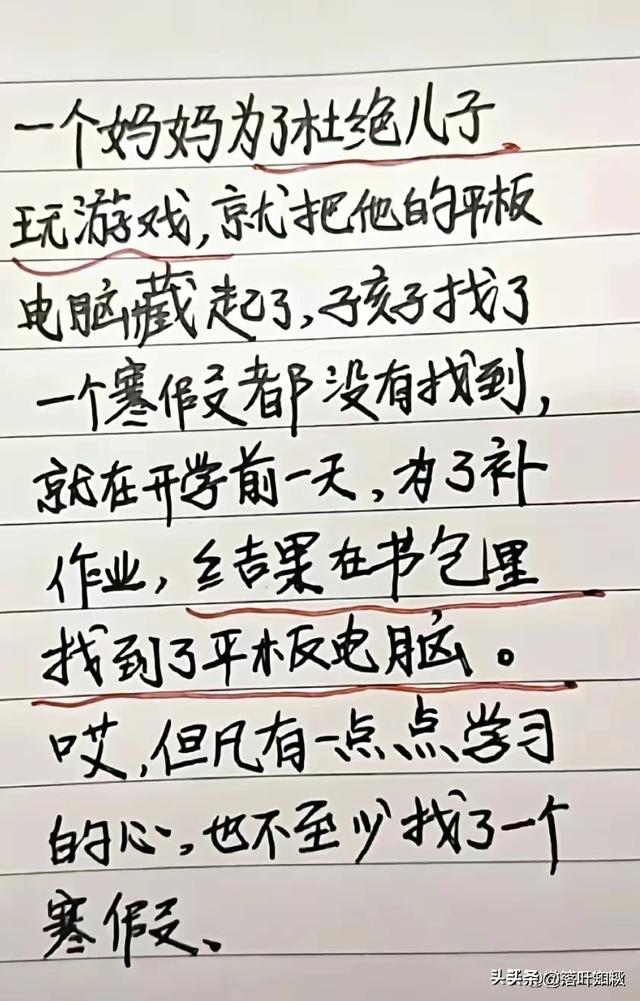 一个妈妈为了杜绝儿子
玩游戏,就把他的平板
电脑藏起了,孩子找了
一个寒假都没有找到,
就在开学前一天,为了补
作业,结果在书包里
找到了平板电脑。
哎,但凡有一点点学习
的心,也不至少找了一个
寒假、
头条@落叶知秋